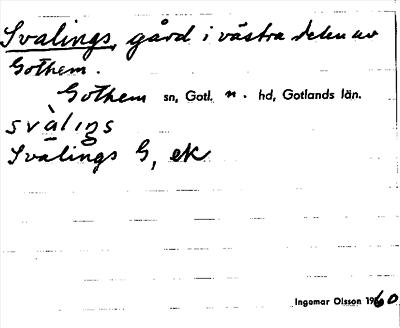 Svalings, gård i västra delen av
Gothem.
Gothem sn, Gotl. n. hd, Gotlands län.
svàlıŋs
Svalings G, ek
Ingemar Olsson 1960